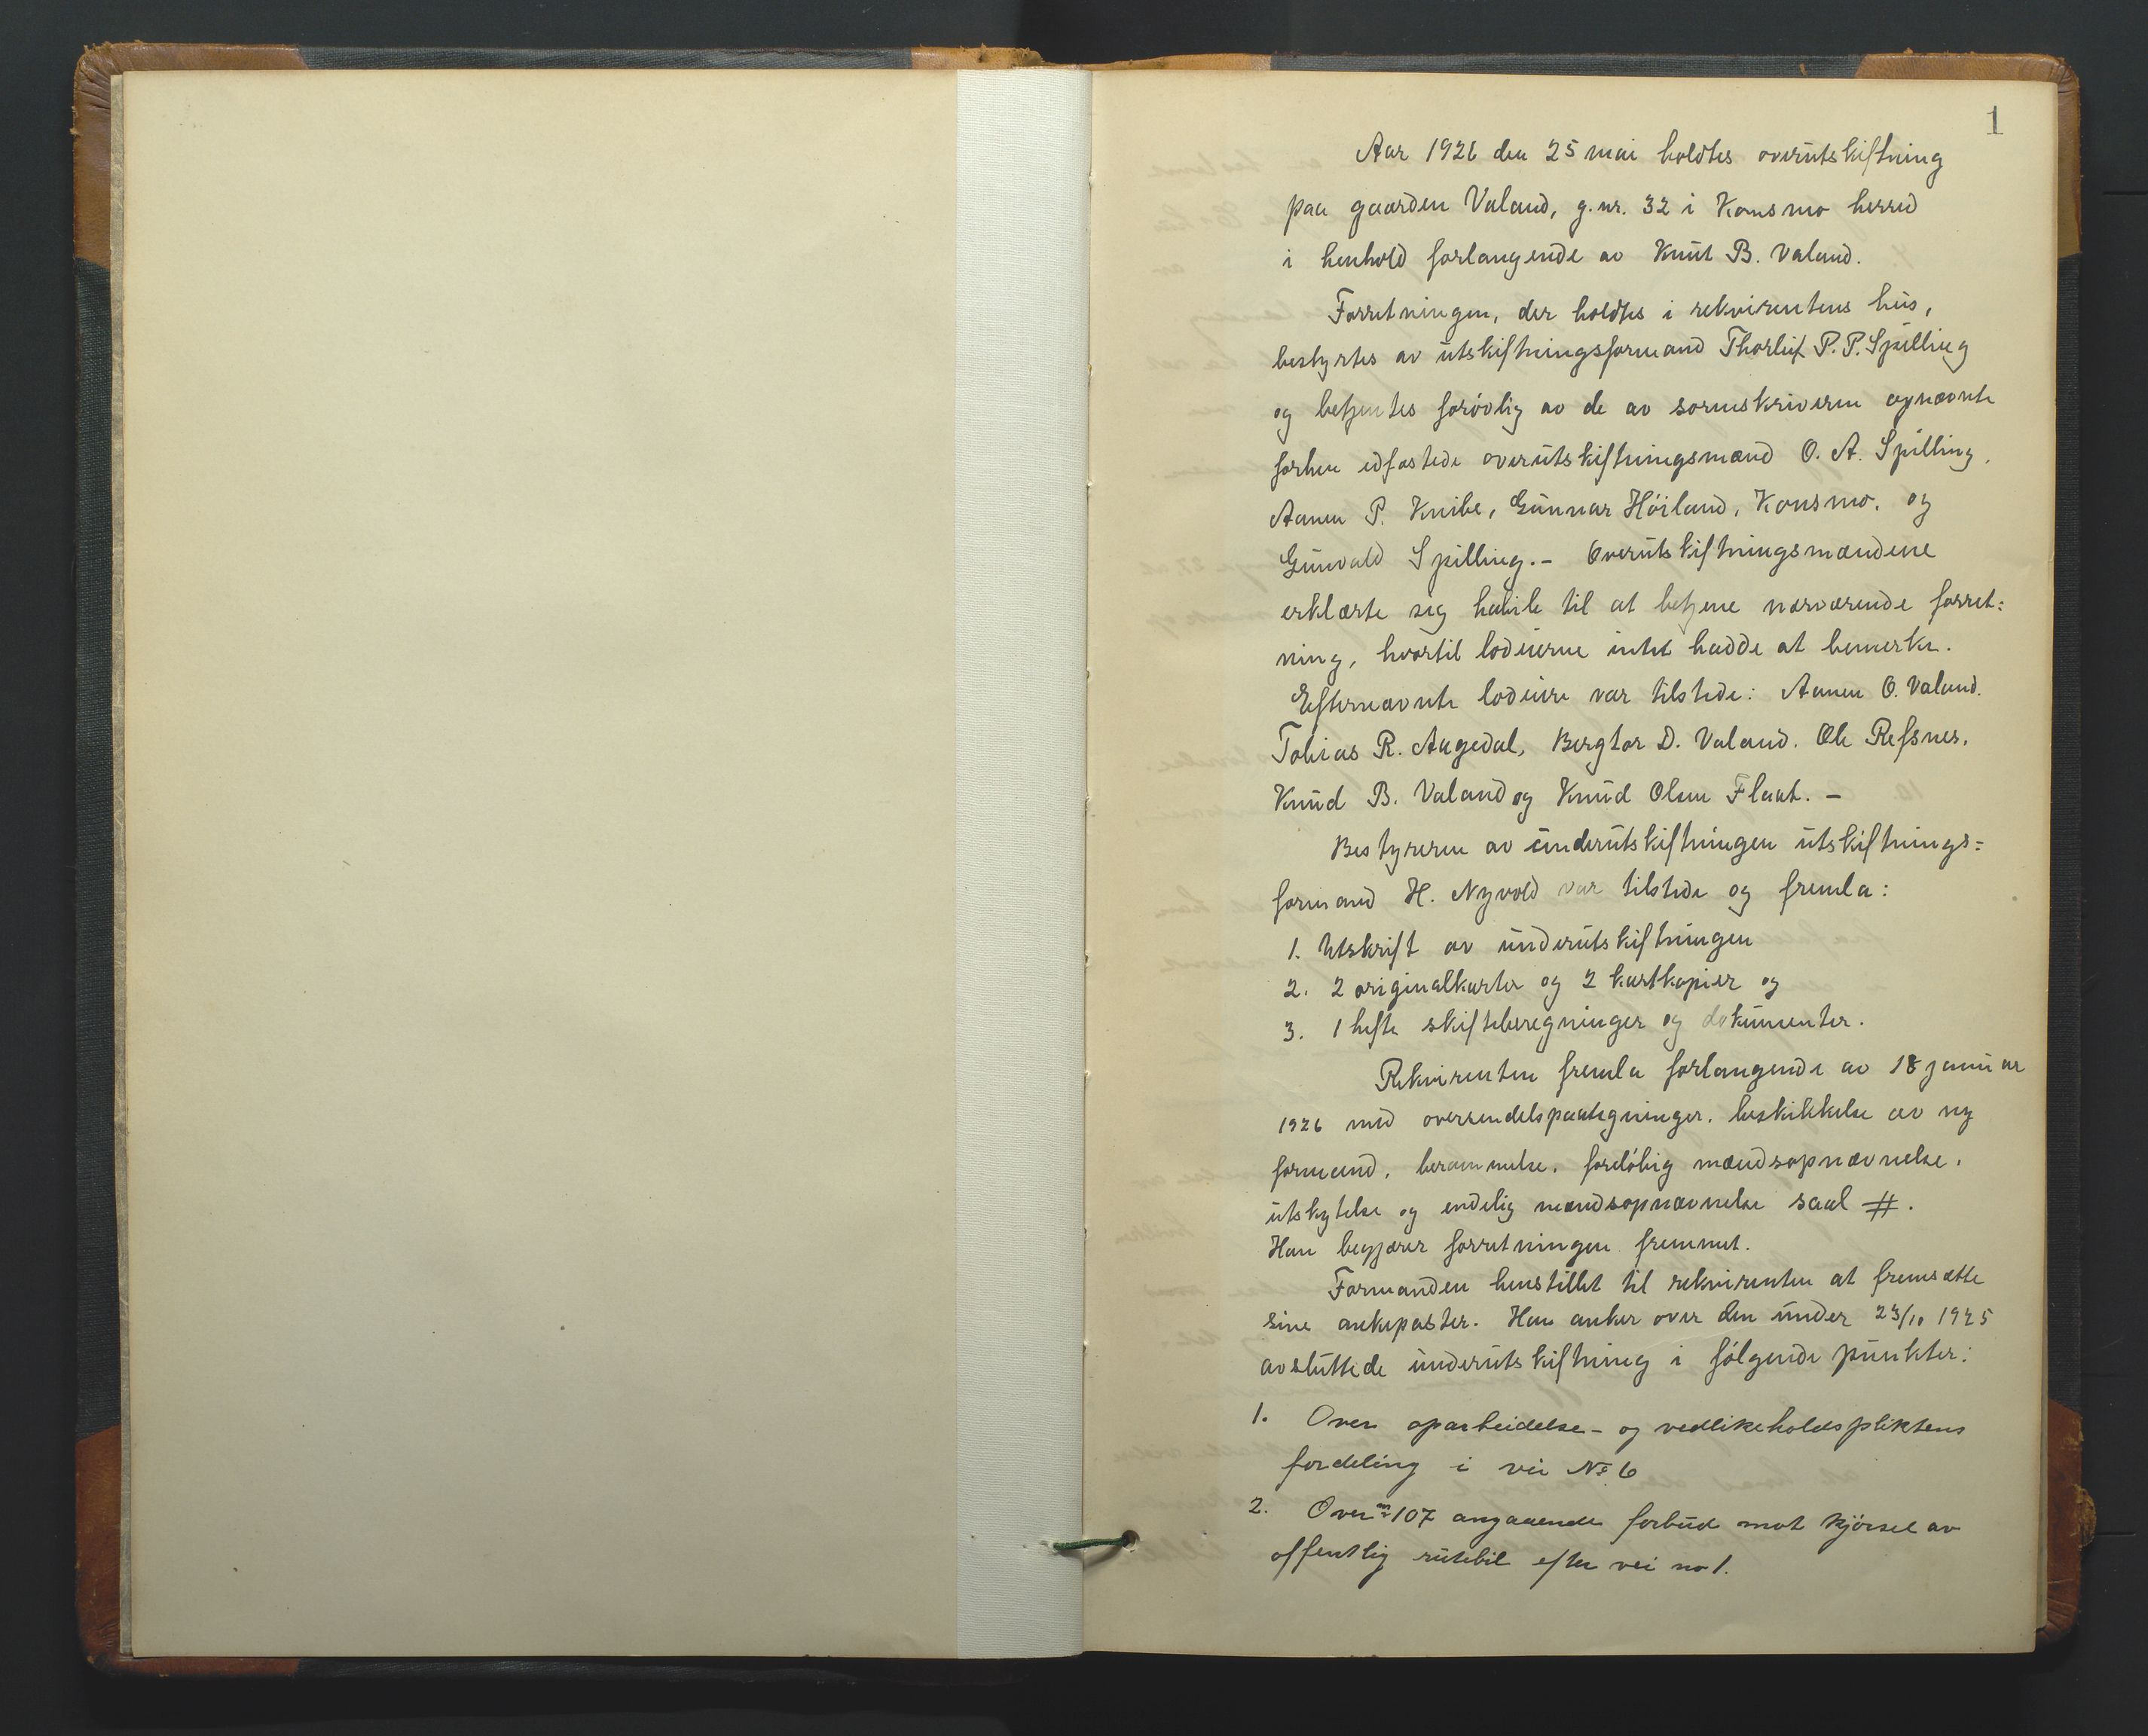 1
Aar 1926 den 25 mai holdtes overutskiftning
paa gaarden Valand, g.nr. 32 i Konsmo herred
i henhold forlangende av Knut B. Valand.
Forretningen, der holdtes i rekvirentens hus,
bestyrtes av utskiftningsformand Thorleif P. P. Spilling
og betjentes forøvlig av de av sorenskriveren opnævnte
forhen edfæstede overutskiftningsmænd O. A. Spilling.
Aanen P. Knibe, Gunnar Höiland, Konsmo. og
Gunvald Spilling.- Overutskiftningsmændene
erklærte sig habile til at betjene nærværende forret:
ning, hvortil lodeierne intet hadde at bemerke.
Efternævnte lodeiere var tilstede: Aanen O. Valand.
Tobias R. Augedal, Bergtor D. Valand. Ole Refsnes.
Knud B. Valand og Knud Olsen Flaat. -
Bestyreren av underutskiftningen utskiftnings=
formand H. Nyvold var tilstede og fremla:
1. Utskrift av underutskiftningen
2. 2 originalkarter og 2 kartkopier og
3. 1 hefte skifteberegninger og dokumenter.
Rekvirenten fremla forlangende av 18 januar
1926 med oversendelspaategninger. beskikkelse av ny
formand, berammelse. foreløbig mændsopnævnelse.
utskytelse og endelig mændsopnævnelse saal #.
Han begjærer forretningen fremmet.
Formanden henstillet til rekvirenten at fremsætte
sine ankeposter. Han anker over den under 23/10 1925
avsluttede underutskiftning i følgende punkter:
1. Over oparbeidelse- og vedlikeholdspliktens
fordeling i vei No 6
2. Over 107 angaaende forbud mot kjørsel av
offentlig rutebil efter vei no 1.